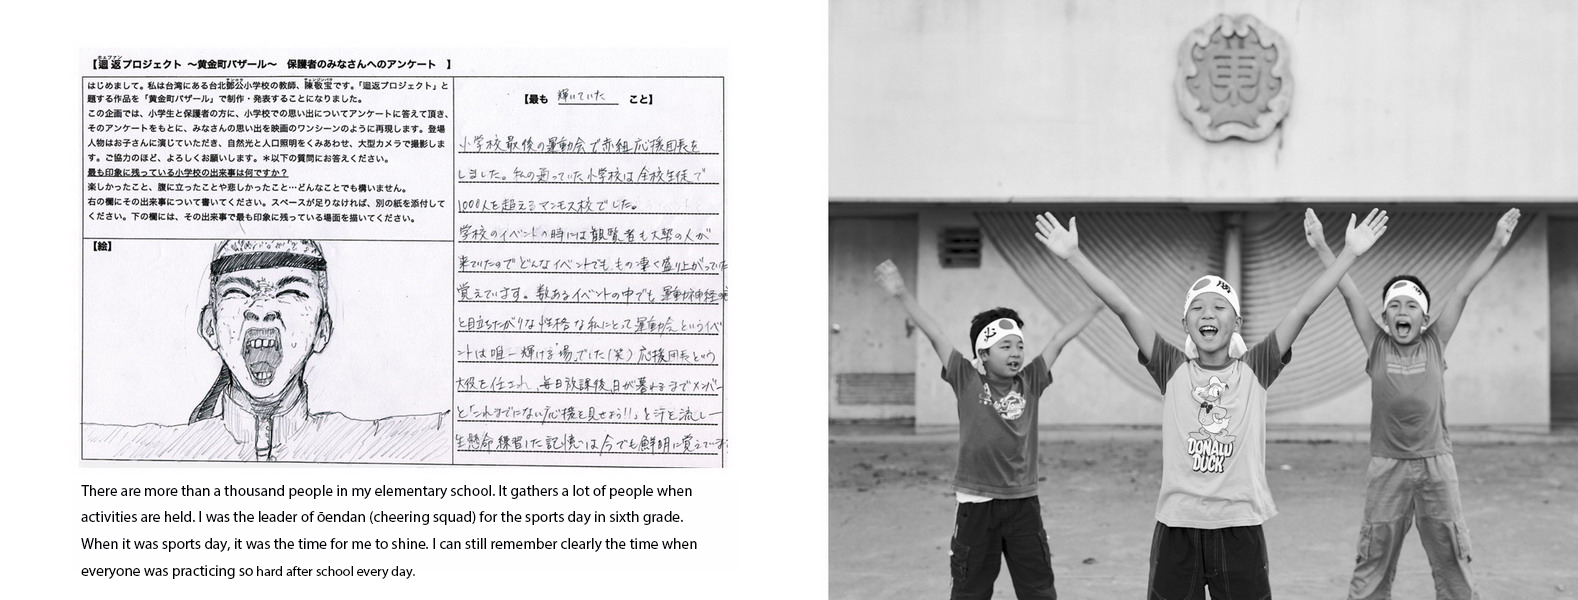 【迴返プロジェクト ～黄金町バザール～　保護者のみなさんへのアンケート　】
はじめまして。私は台湾にある台北鄧公小学校の教師、陳敬宝です。「迴返プロジェクト」と
題する作品を「黄金町バザール」で制作・発表することになりました。
この企画では、小学生と保護者の方に、小学校での思い出についてアンケートに答えて頂き、
そのアンケートをもとに、みなさんの思い出を映画のワンシーンのように再現します。登場
人物はお子さんに演じていただき、自然光と人口照明をくみあわせ、大型カメラで撮影しま
す。ご協力のほど、よろしくお願いします。＊以下の質問にお答えください。
最も印象に残っている小学校の出来事は何ですか？
楽しかったこと、腹に立ったことや悲しかったこと…どんなことでも構いません。
右の欄にその出来事について書いてください。スペースが足りなければ、別の紙を添付して
ください。下の欄には、その出来事で最も印象に残っている場面を描いてください。
【絵】
【最も 輝いていた こと】
小学校最後の運動会で赤組応援団長を
しました。私の通っていた小学校は全校生徒で
1000人を超えるマンモス校でした。
学校のイベントの時には観覧者も大勢の人が
来ていたのでどんなイベントでももの凄く盛り上がっていた
覚えています。数あるイベントの中でも運動神経
と目立ちたがりな性格な私にとって運動会というイベ
ントは唯一輝ける場でした(笑) 応援団長という
大役を任され、毎日放課後、日が暮れるまでメンバー
と「これまでにない応援を見せよう!!」と汗を流し一
生懸命練習した記憶は今でも鮮明に覚えていま
There are more than a thousand people in my elementary school. It gathers a lot of people when
activities are held. I was the leader of ōendan (cheering squad) for the sports day in sixth grade.
When it was sports day, it was the time for me to shine. I can still remember clearly the time when
everyone was practicing so hard after school every day.
必
勝
DONALD
DUCK